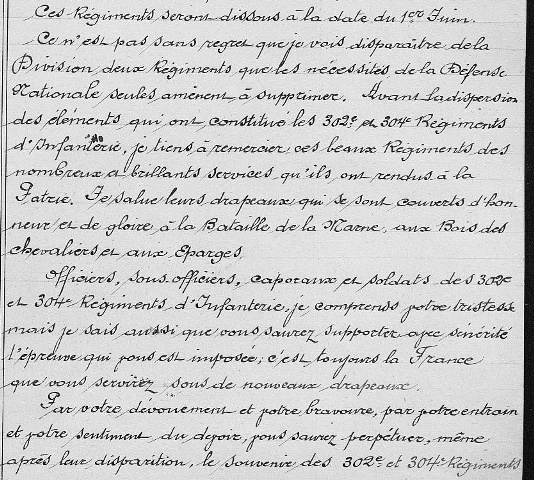 Ces Régiments seront dissous à la date du 1er Juin.
Ce n'est pas sans regret que je vois disparaître de la
Division deux Régiments que les nécessités de la Défense
Nationale seules amènent à supprimer. Avant la dispersion
des éléments, qui ont constitué les 302e et 304e Régiments
d'Infanterie, je tiens à remercier ces beaux Régiments des
nombreux et brillants services qu'ils ont rendus à la
Patrie. Je salue leurs drapeaux qui se sont couverts d'hon-
neur et de gloire à la Bataille de la Marne, aux Bois des
chevaliers et aux Eparges.
Officiers, sous-officiers, caporaux et soldats des 302e
et 304e Régiments d'Infanterie, je comprends votre tristesse
mais je sais aussi que vous saurez supporter avec sérénité
l'épreuve qui vous est imposée; c'est toujours la France
que vous servirez sous de nouveaux drapeaux.
Par votre dévouement et votre bravoure, par votre entrain
et votre sentiment du devoir, vous saurez perpétuer, même
après leur disparition, le souvenir des 302e et 304e Régiments